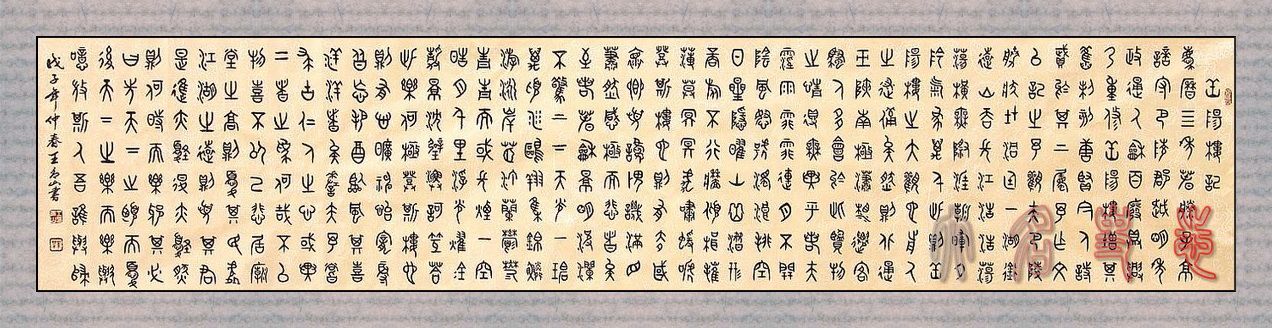 岳陽樓記
慶曆四年春滕子京
謫守巴陵郡越明年
政通人和百廢具興
乃重修岳陽樓增其
舊制刻唐賢今人詩
賦於其上屬予作文
以記之予觀夫巴陵
勝狀在洞庭一湖銜
遠山吞長江浩浩湯
湯橫無際涯朝暉夕
陰氣象萬千此則岳
陽樓之大觀也前人
之述備矣然則北通
巫峽南極瀟湘遷客
騷人多會於此覽物
之情得無異乎若夫
霪雨霏霏連月不開
陰風怒號濁浪排空
日星隱曜山岳潛形
商旅不行檣傾楫摧
薄暮冥冥虎嘯猿啼
登斯樓也則有去國
懷鄉憂讒畏譏滿目
蕭然感極而悲者矣
至若春和景明波瀾
不驚上下天光一碧
萬頃沙鷗翔集錦鱗
游泳岸芷汀蘭郁郁
青青而或長煙一空
皓月千里浮光耀金
靜影沉璧漁歌互答
此樂何極登斯樓也
則有心曠神怡寵辱
皆忘把酒臨風其喜
洋洋者矣嗟夫予嘗
求古仁人之心或異
二者之為何哉不以
物喜不以己悲居廟
堂之高則憂其民處
江湖之遠則憂其君
是進亦憂退亦憂然
則何時而樂耶其必
曰先天下之憂而憂
後天下之樂而樂歟
噫微斯人吾誰與歸
戊子年仲春王書